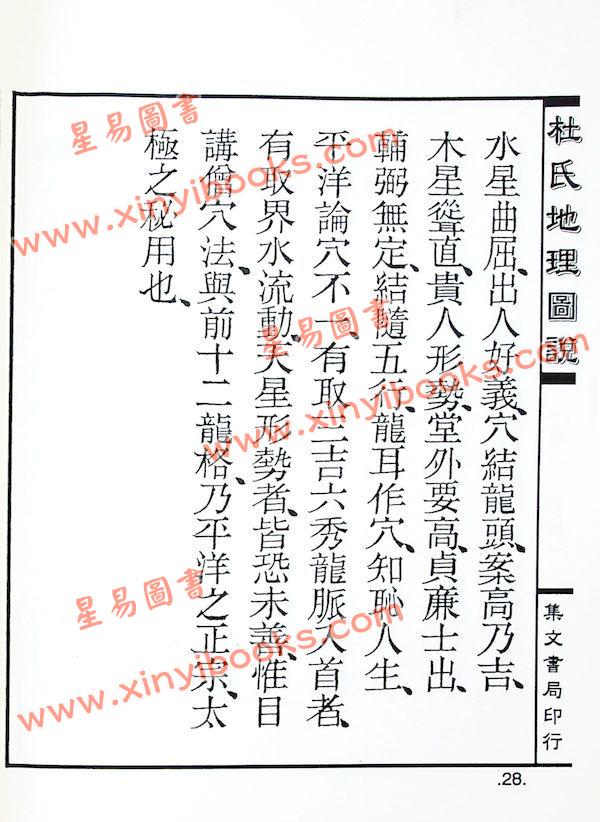 杜氏地理圖說
水星曲屈、出人好義、穴結龍頭、案高乃吉、
木星聳直、貴人形勢、堂外要高、貞廉士出、
輔弼無定、結隨五行、龍耳作穴、知恥人生、
平洋論穴不一、有取三吉六秀龍脈入首者、
有取界水流動、天星形勢者、皆恐未善、惟目
講僧穴法、與前十二龍格、乃平洋之正宗、太
極之秘用也、
集文書局印行
.28.
星易圖書
www.xinyibooks.com
星易圖書
www.xinyibooks.com
星易圖書
www.xinyibooks.com